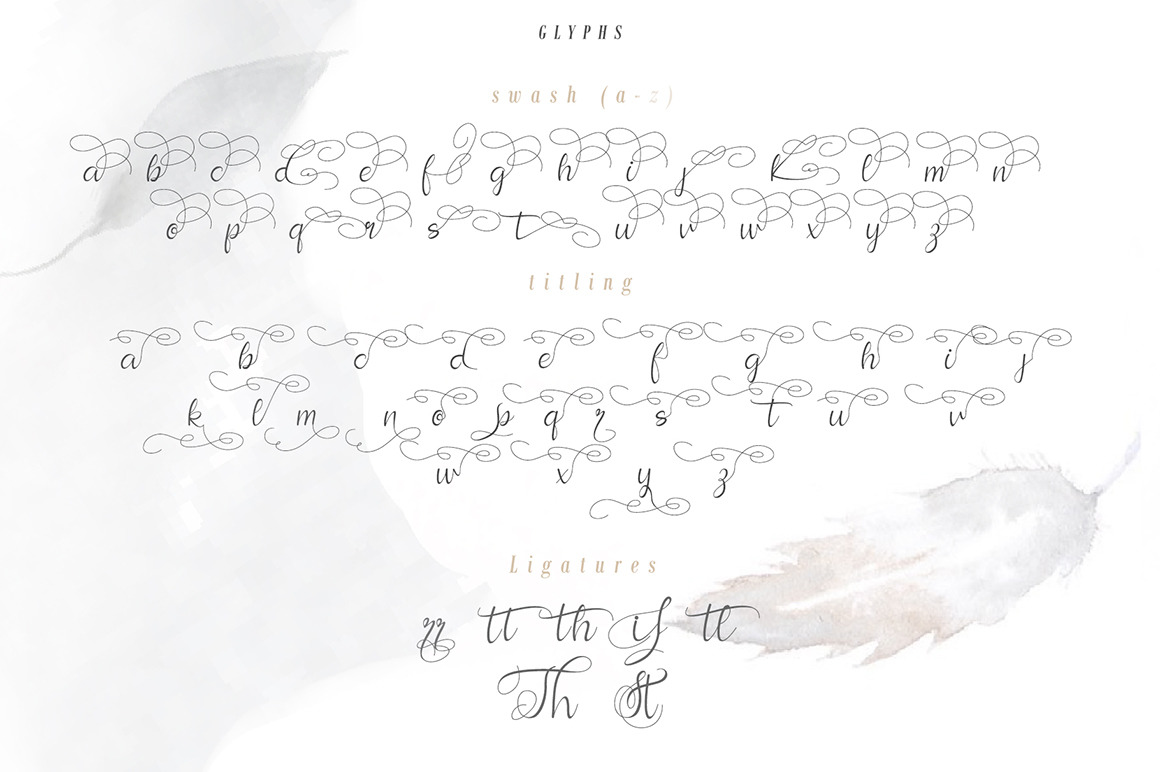 GLYPHS
swash (a-z)
a b c d e f g h i j k l m n
o p q r s t u v w x y z
titling
a b c d e f g h i j
k l m n o p q r s t u v
w x y z
Ligatures
rr tt th if tl
Th st